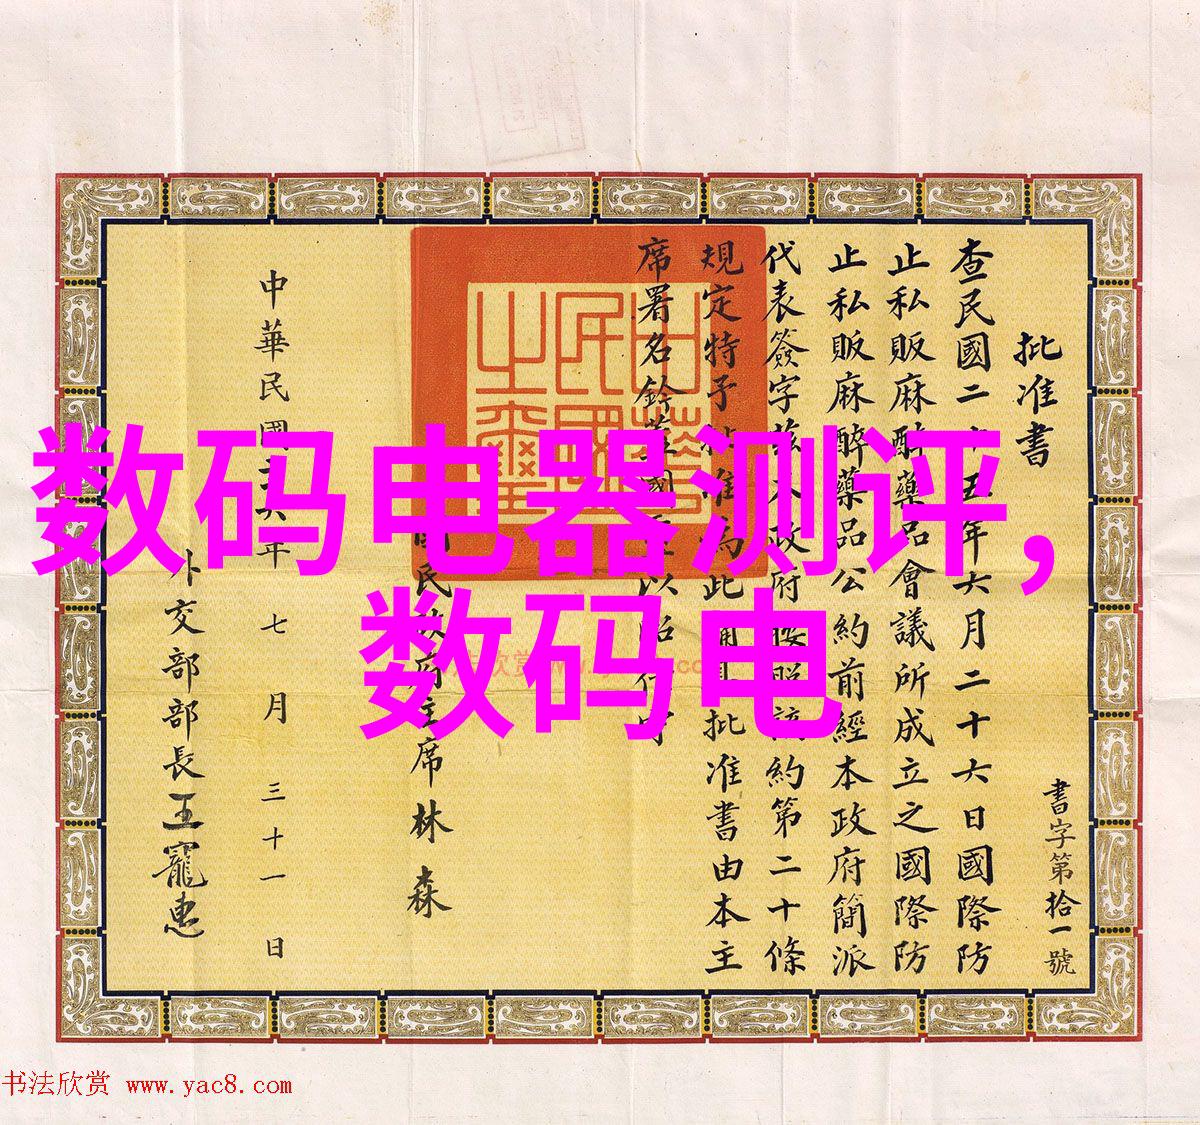 批准書
查民國二十五年六月二十六日國際防
止私販麻醉藥品會議所成立之國際防
止私販麻醉藥品公約前經本政府簡派
代表簽字茲本政府 該約第二十條
規定特予批准為此 批准書由本主
席署名鈐蓋國 以昭信守
國民政府主席林森
中華民國二十六年 七月 三十一日
外交部部長王寵惠
書字第拾一號
数码电器测评，
数码电
书法欣赏 www.yac8.com